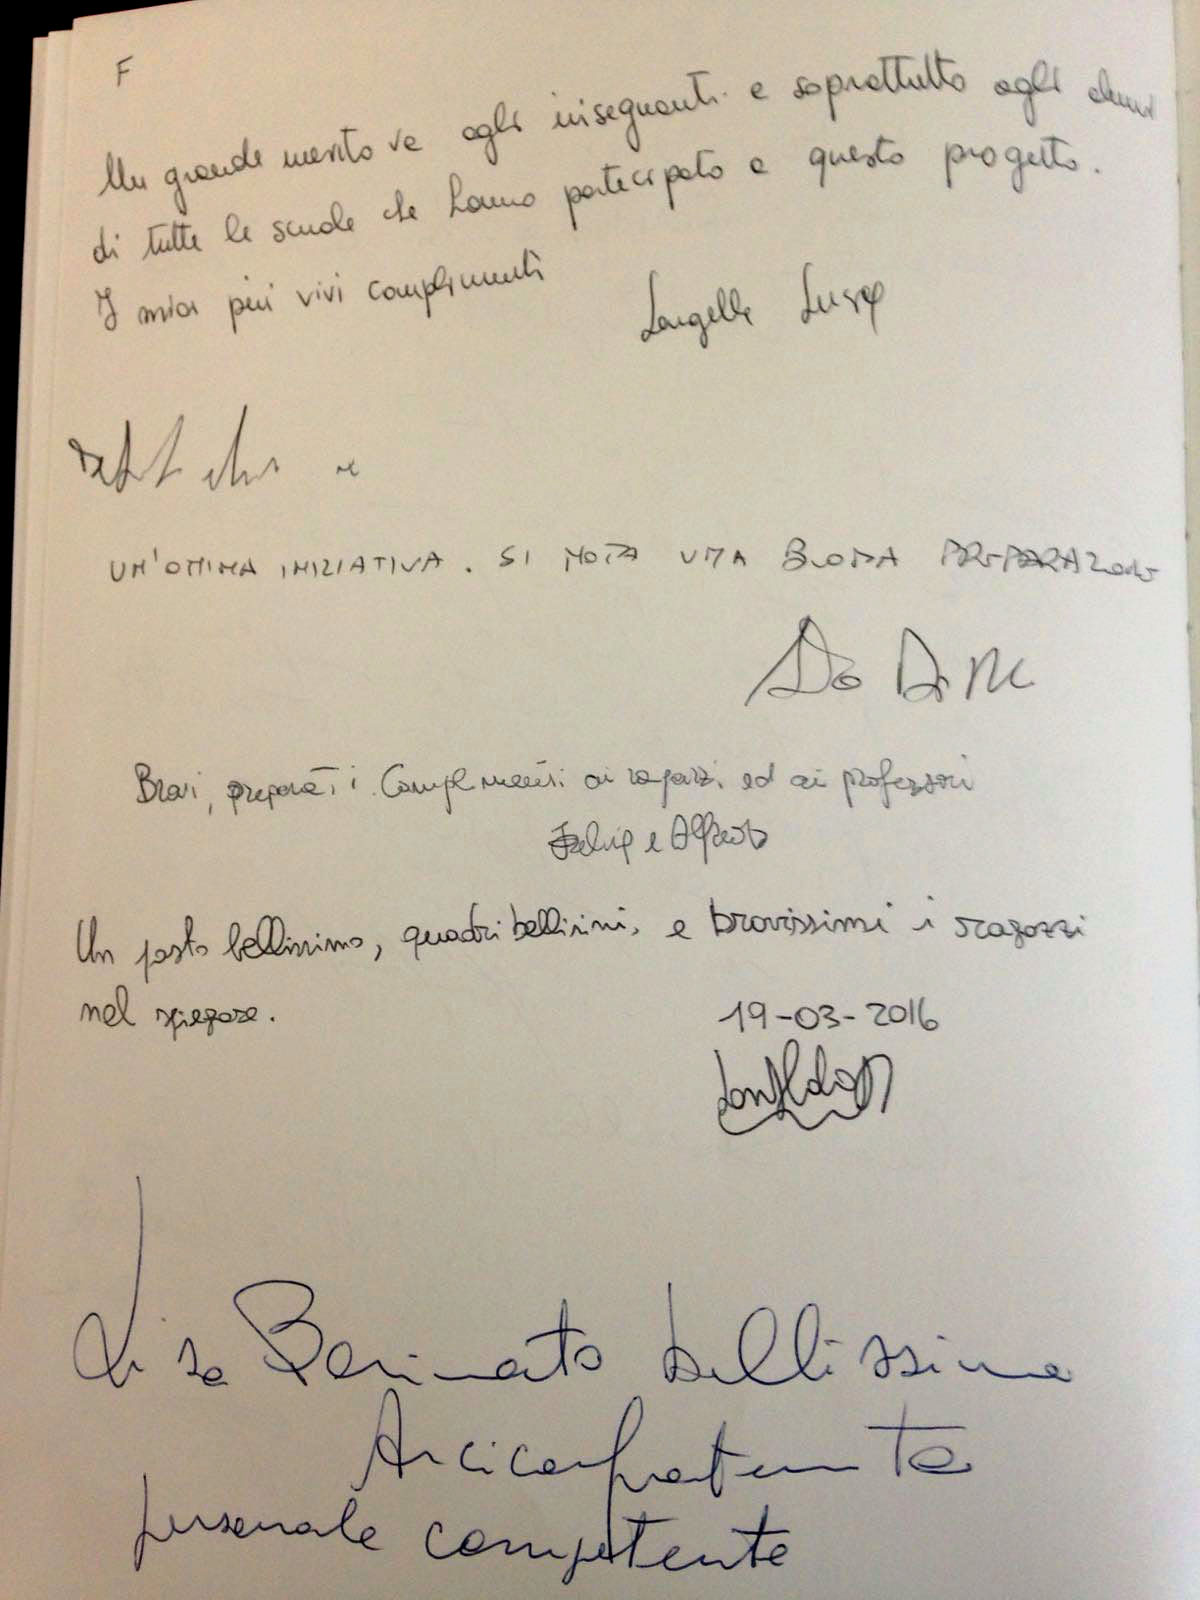 F
Un grande merito va agli insegnanti e soprattutto agli alunni
di tutte le scuole che hanno partecipato a questo progetto.
I miei più vivi complimenti
Langella Luisa
UN'OTTIMA INIZIATIVA. SI NOTA UNA BUONA PREPARAZIONE
Bravi, preparati. Complimenti ai ragazzi ed ai professori
e Alfredo
Un posto bellissimo, quadri bellissimi, e bravissimi i ragazzi
nel spiegare.
19-03-2016
Lisa Benimato bellissima
personale competente